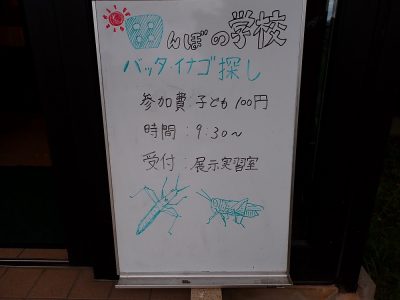 田んぼの学校
バッタ・イナゴ探し
参加費:子ども100円
時間:9:30～
受付:展示実習室